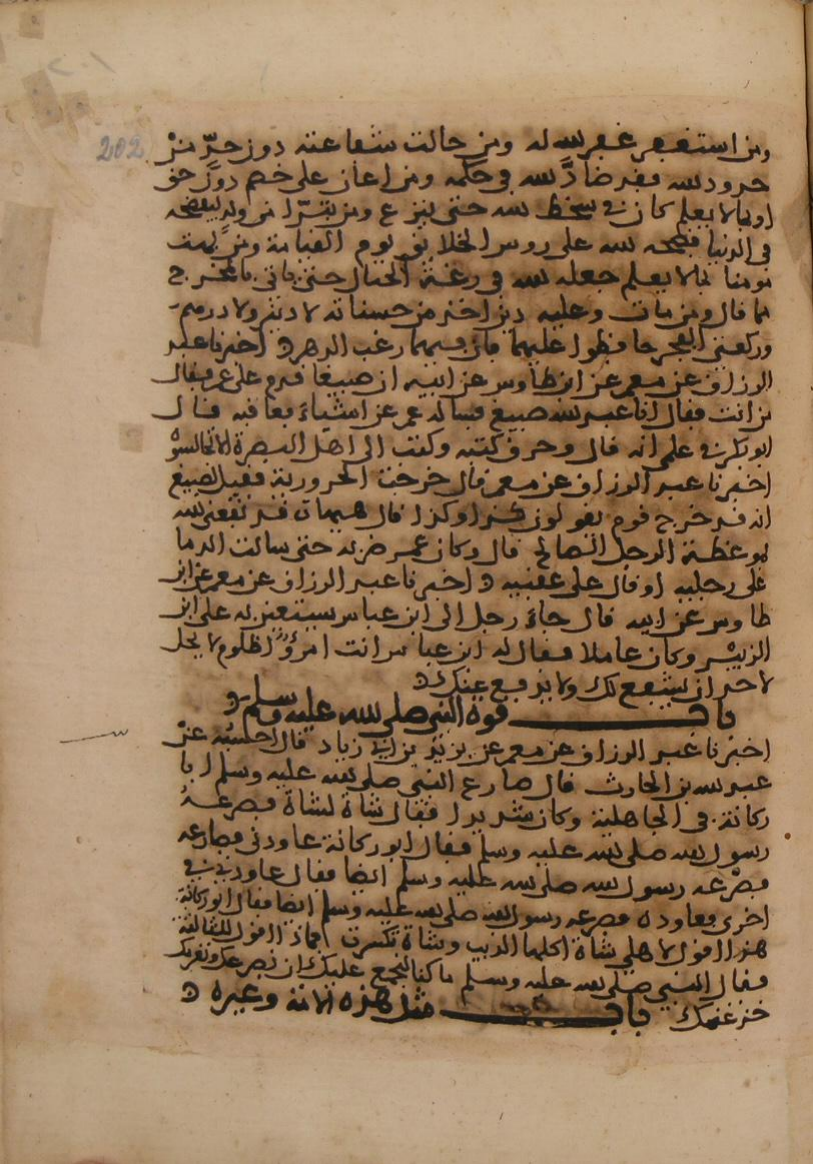 202
ومن استغفر غفر الله له ومن حالت شفاعته دون حدٍّ من
حدود الله فقد ضادَّ الله في حكمه ومن اعان على خصم دون حق
او بما لا يعلم كان في سخط الله حتى ينزع ومن تبرّا من ولدٍ ليفضحه
في الدنيا فضحه الله على روس الخلايق يوم القيامة ومن بهت
مومنا بما لا يعلم جعله الله في ردغة الخبال حتى ياتي بالمخرج
مما قال ومن مات وعليه دين اخذ من حسناته لا دينر ولا درهم
وركعتي الفجر حافظوا عليهما فان فيهما رغب الدهر اخبرنا عبد
الرزاق عن معمر عن ابن طاوس عن ابيه ان صبيغا قدم على عمر فقال
من انت فقال انا عبد الله صبيغ فساله عمر عن اشياء فعاقبه قال
ابو بكر في علمي انه قال وحرق كتبه وكتب الى اهل البصرة الا تجالسوه
اخبرنا عبد الرزاق عن معمر قال خرجت الحرورية فقيل لصبيغ
انه قد خرج قوم يقولون كذا وكذا قال هيهات قد نفعني الله
بموعظة الرجل الصالح قال وكان عمر ضربه حتى سالت الدما
على رجليه او قال على عقبيه اخبرنا عبد الرزاق عن معمر عن ابن
طاوس عن ابيه قال جاء رجل الى ابن عباس يستعين به على ابن
الزبير وكان عاملا فقال له ابن عباس انت امرؤ ظلوم لا يحل
لاحد ان يشفع لك ولا يدفع عنك
باب قوة النبي صلى الله عليه وسلم
اخبرنا عبد الرزاق عن معمر عن يزيد بن ابي زياد قال احسبه عن
عبد الله بن الحارث قال صارع النبي صلى الله عليه وسلم ابا
ركانة في الجاهلية وكان شديدا فقال شاة لشاة فصرعه
رسول الله صلى الله عليه وسلم فقال ابو ركانة عاودني فصارعه
فصرعه رسول الله صلى الله عليه وسلم ايضا فقال عاودني في
اخرى فعاوده فصرعه رسول الله صلى الله عليه وسلم ايضا فقال ابو ركانة
هذا اقول لاهلي شاة اكلها الذيب وشاة تكسرت فماذا اقول للثالثة
فقال النبي صلى الله عليه وسلم ما كنا لنجمع عليك ان نصرعك ونغرمك
خذ غنمك باب مثل هذه الامة وغيره